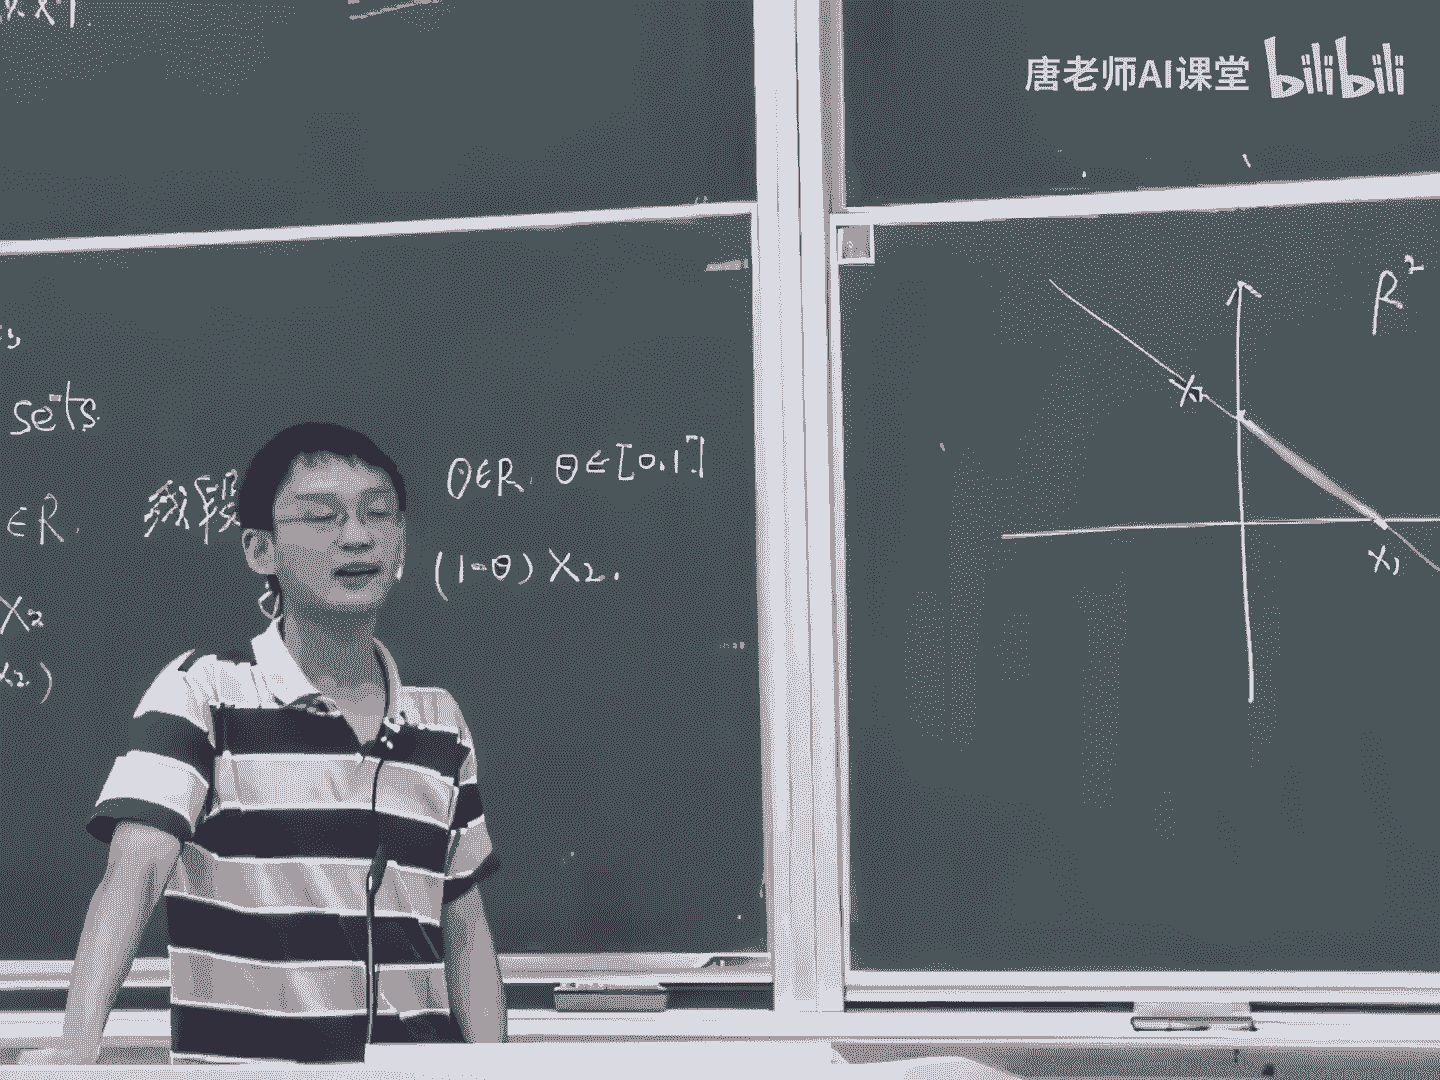 唐老师AI课堂 bilibili
sets.
∈R. 线段 θ∈R. θ∈[0,1]
X₂ (1-θ) X₂.
X₂)
R²
X₂
X₁